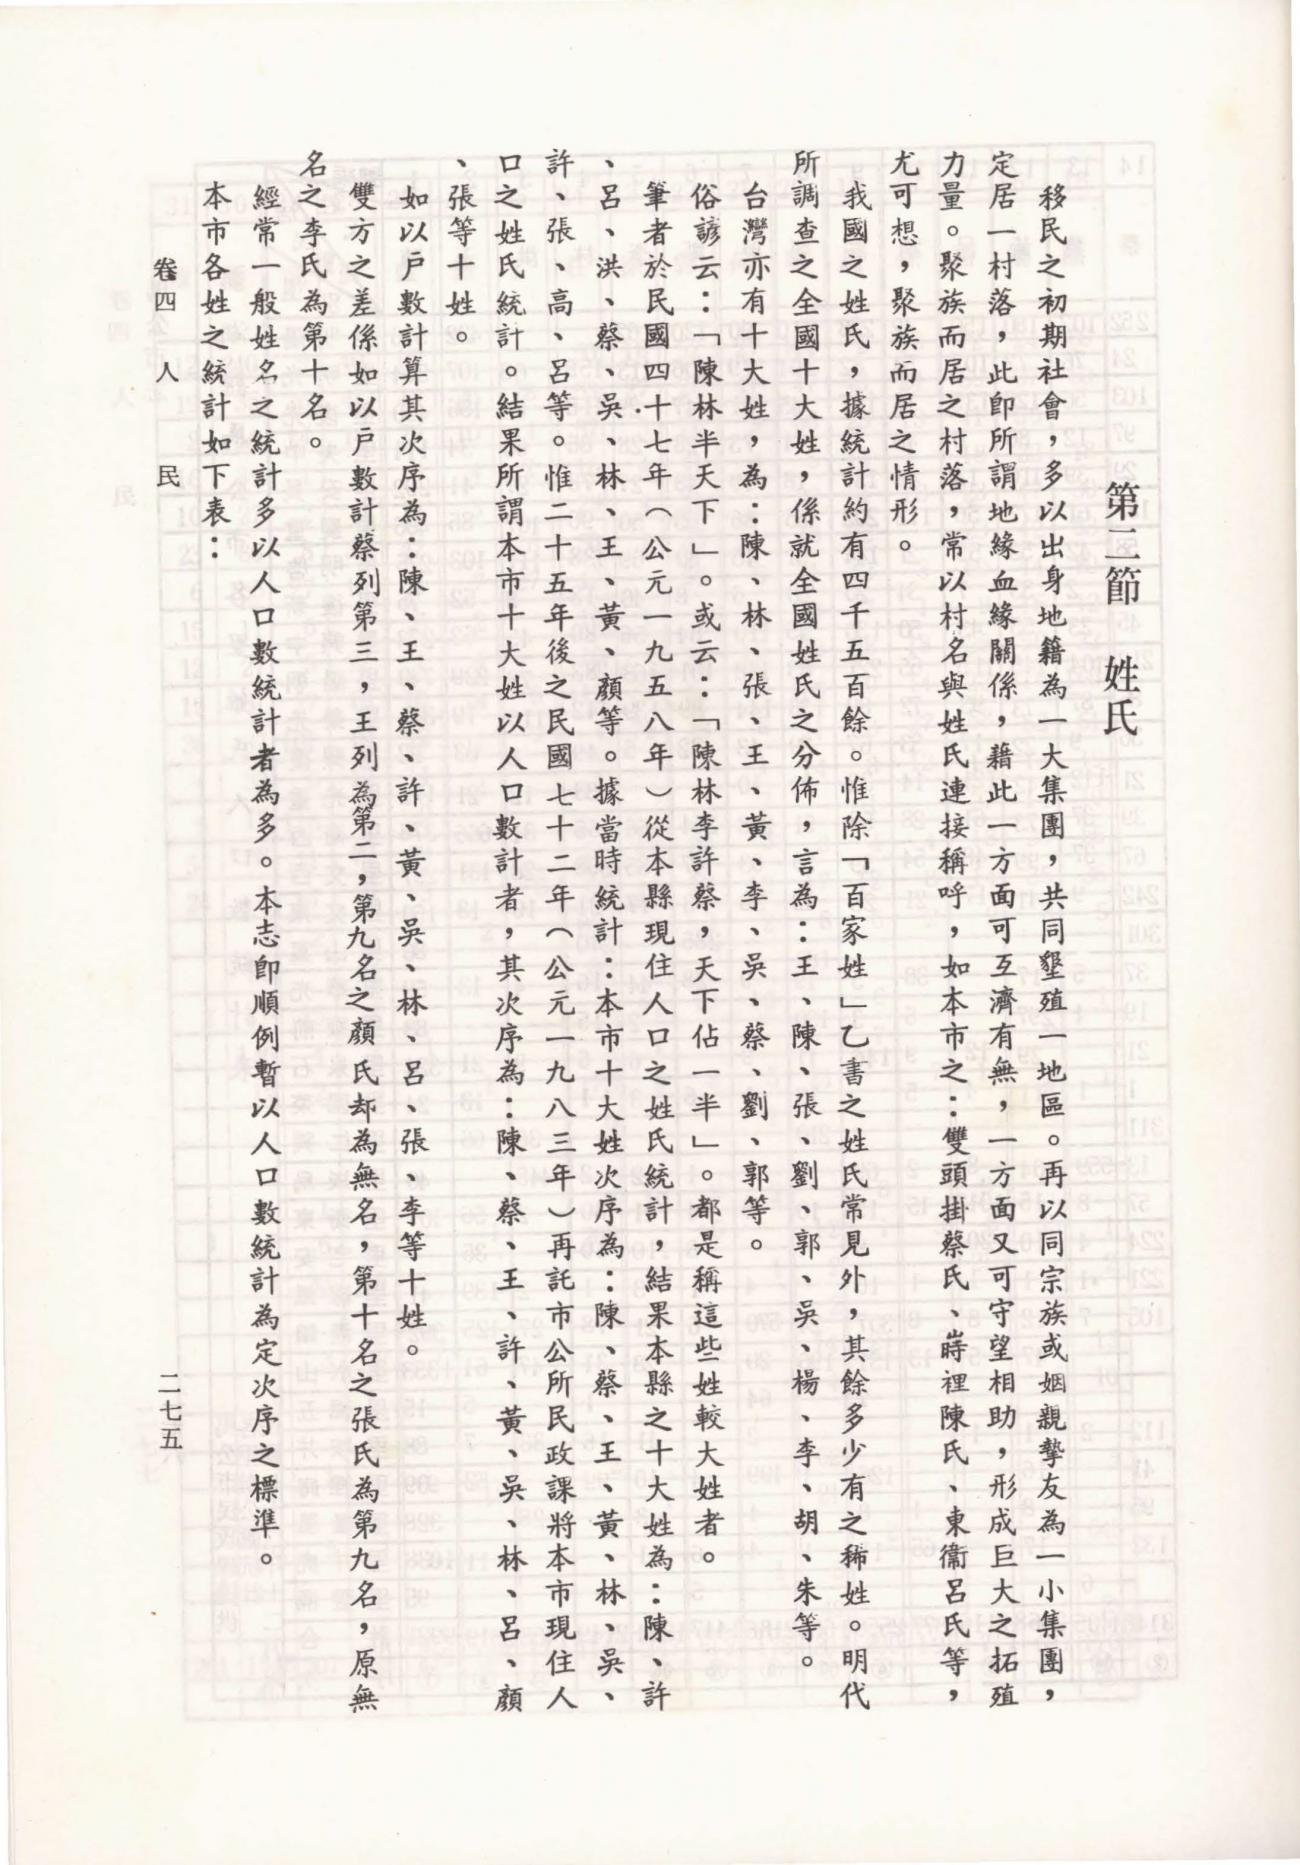 第三節　姓氏
移民之初期社會，多以出身地籍為一大集團，共同墾殖一地區。再以同宗族或姻親摯友為一小集團，
定居一村落，此即所謂地緣血緣關係，藉此一方面可互濟有無，一方面又可守望相助，形成巨大之拓殖
力量。聚族而居之村落，常以村名與姓氏連接稱呼，如本市之：雙頭掛蔡氏、嵵裡陳氏、東衞呂氏等，
尤可想，聚族而居之情形。
我國之姓氏，據統計約有四千五百餘。惟除「百家姓」乙書之姓氏常見外，其餘多少有之稀姓。明代
所調查之全國十大姓，係就全國姓氏之分佈，言為：王、陳、張、劉、郭、吳、楊、李、胡、朱等。
台灣亦有十大姓，為：陳、林、張、王、黃、李、吳、蔡、劉、郭等。
俗諺云：「陳林半天下」。或云：「陳林李許蔡，天下佔一半」。都是稱這些姓較大姓者。
筆者於民國四十七年（公元一九五八年）從本縣現住人口之姓氏統計，結果本縣之十大姓為：陳、許
、呂、洪、蔡、吳、林、王、黃、顏等。據當時統計：本市十大姓次序為：陳、蔡、王、黃、林、吳、
許、張、高、呂等。惟二十五年後之民國七十二年（公元一九八三年）再託市公所民政課將本市現住人
口之姓氏統計。結果所謂本市十大姓以人口數計者，其次序為：陳、蔡、王、許、黃、吳、林、呂、顏
、張等十姓。
如以戶數計算其次序為：陳、王、蔡、許、黃、吳、林、呂、張、李等十姓。
雙方之差係如以戶數計蔡列第三，王列為第二，第九名之顏氏却為無名，第十名之張氏為第九名，原無
名之李氏為第十名。
經常一般姓名之統計多以人口數統計者為多。本志即順例暫以人口數統計為定次序之標準。
本市各姓之統計如下表：
卷四　人　民
二七五